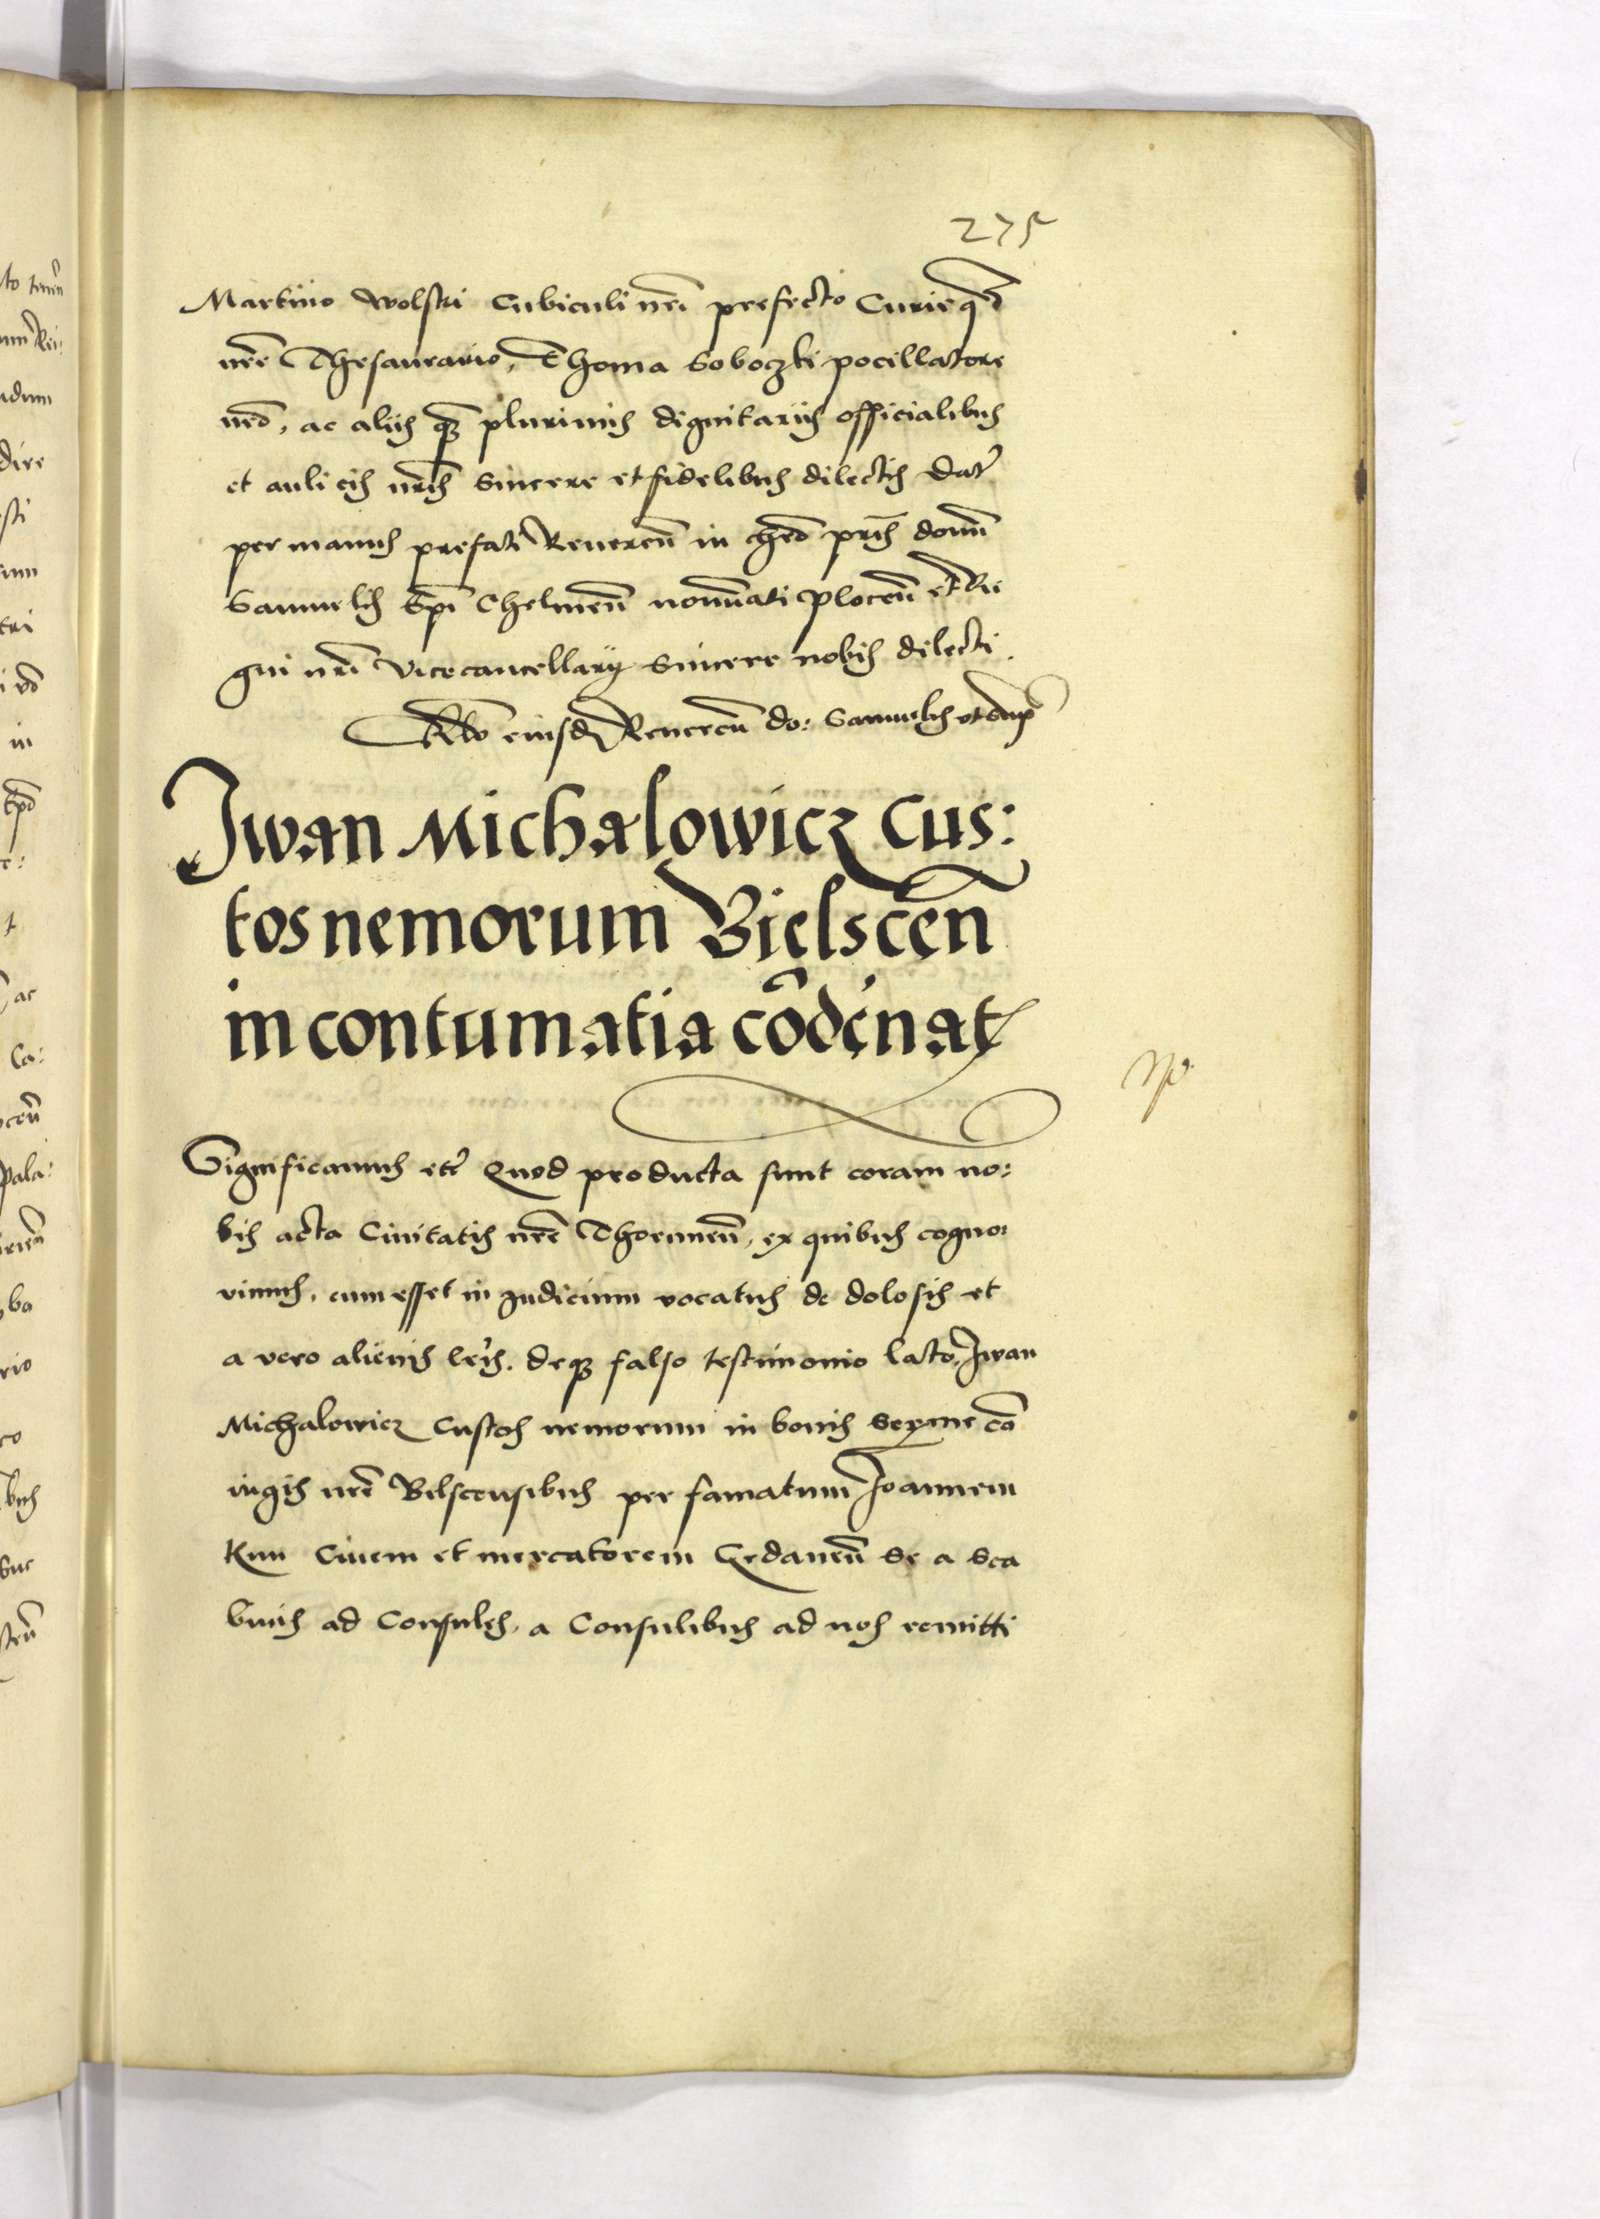 275
Martino Wolski Cubiculi nrī prefecto Curieq̄
nrē Thesaurario, Thoma Soboczki pocillatore
nrō, ac aliis qz plurimis dignitariis officialibus
et aulicis nrīs sincere et fidelibus dilectis Dat
per manus prefati Reverēn in chrō prīs domn̄
Samuelis Ep̄i Chelmen̄ nominati Plocen̄ et Re
gni nrī Vicecancellarij sincere nobis dilecti.
Rlō eiusd Reveren̄ do: Samuelis ut sup̄
Iwan Michalowicz Cus:
tos nemorum Bielscēn
in contumatia cōdēnat
Significamus etc Quod producta sunt coram no:
bis acta Civitatis nrē Thorunen̄, ex quibus cogno:
vimus, cum esset in Judicium vocatus de dolosis et
a vero alienis lrīs. deqz falso testimonio lato, Iwan
Michalowicz Custos nemorum in bonis serme cō
iugis nrē Bilscensibus per famatum Joannem
Kun Civem et mercatorem Gedanen̄ se a Sca
binis ad Consules, a Consulibus ad nos remitti